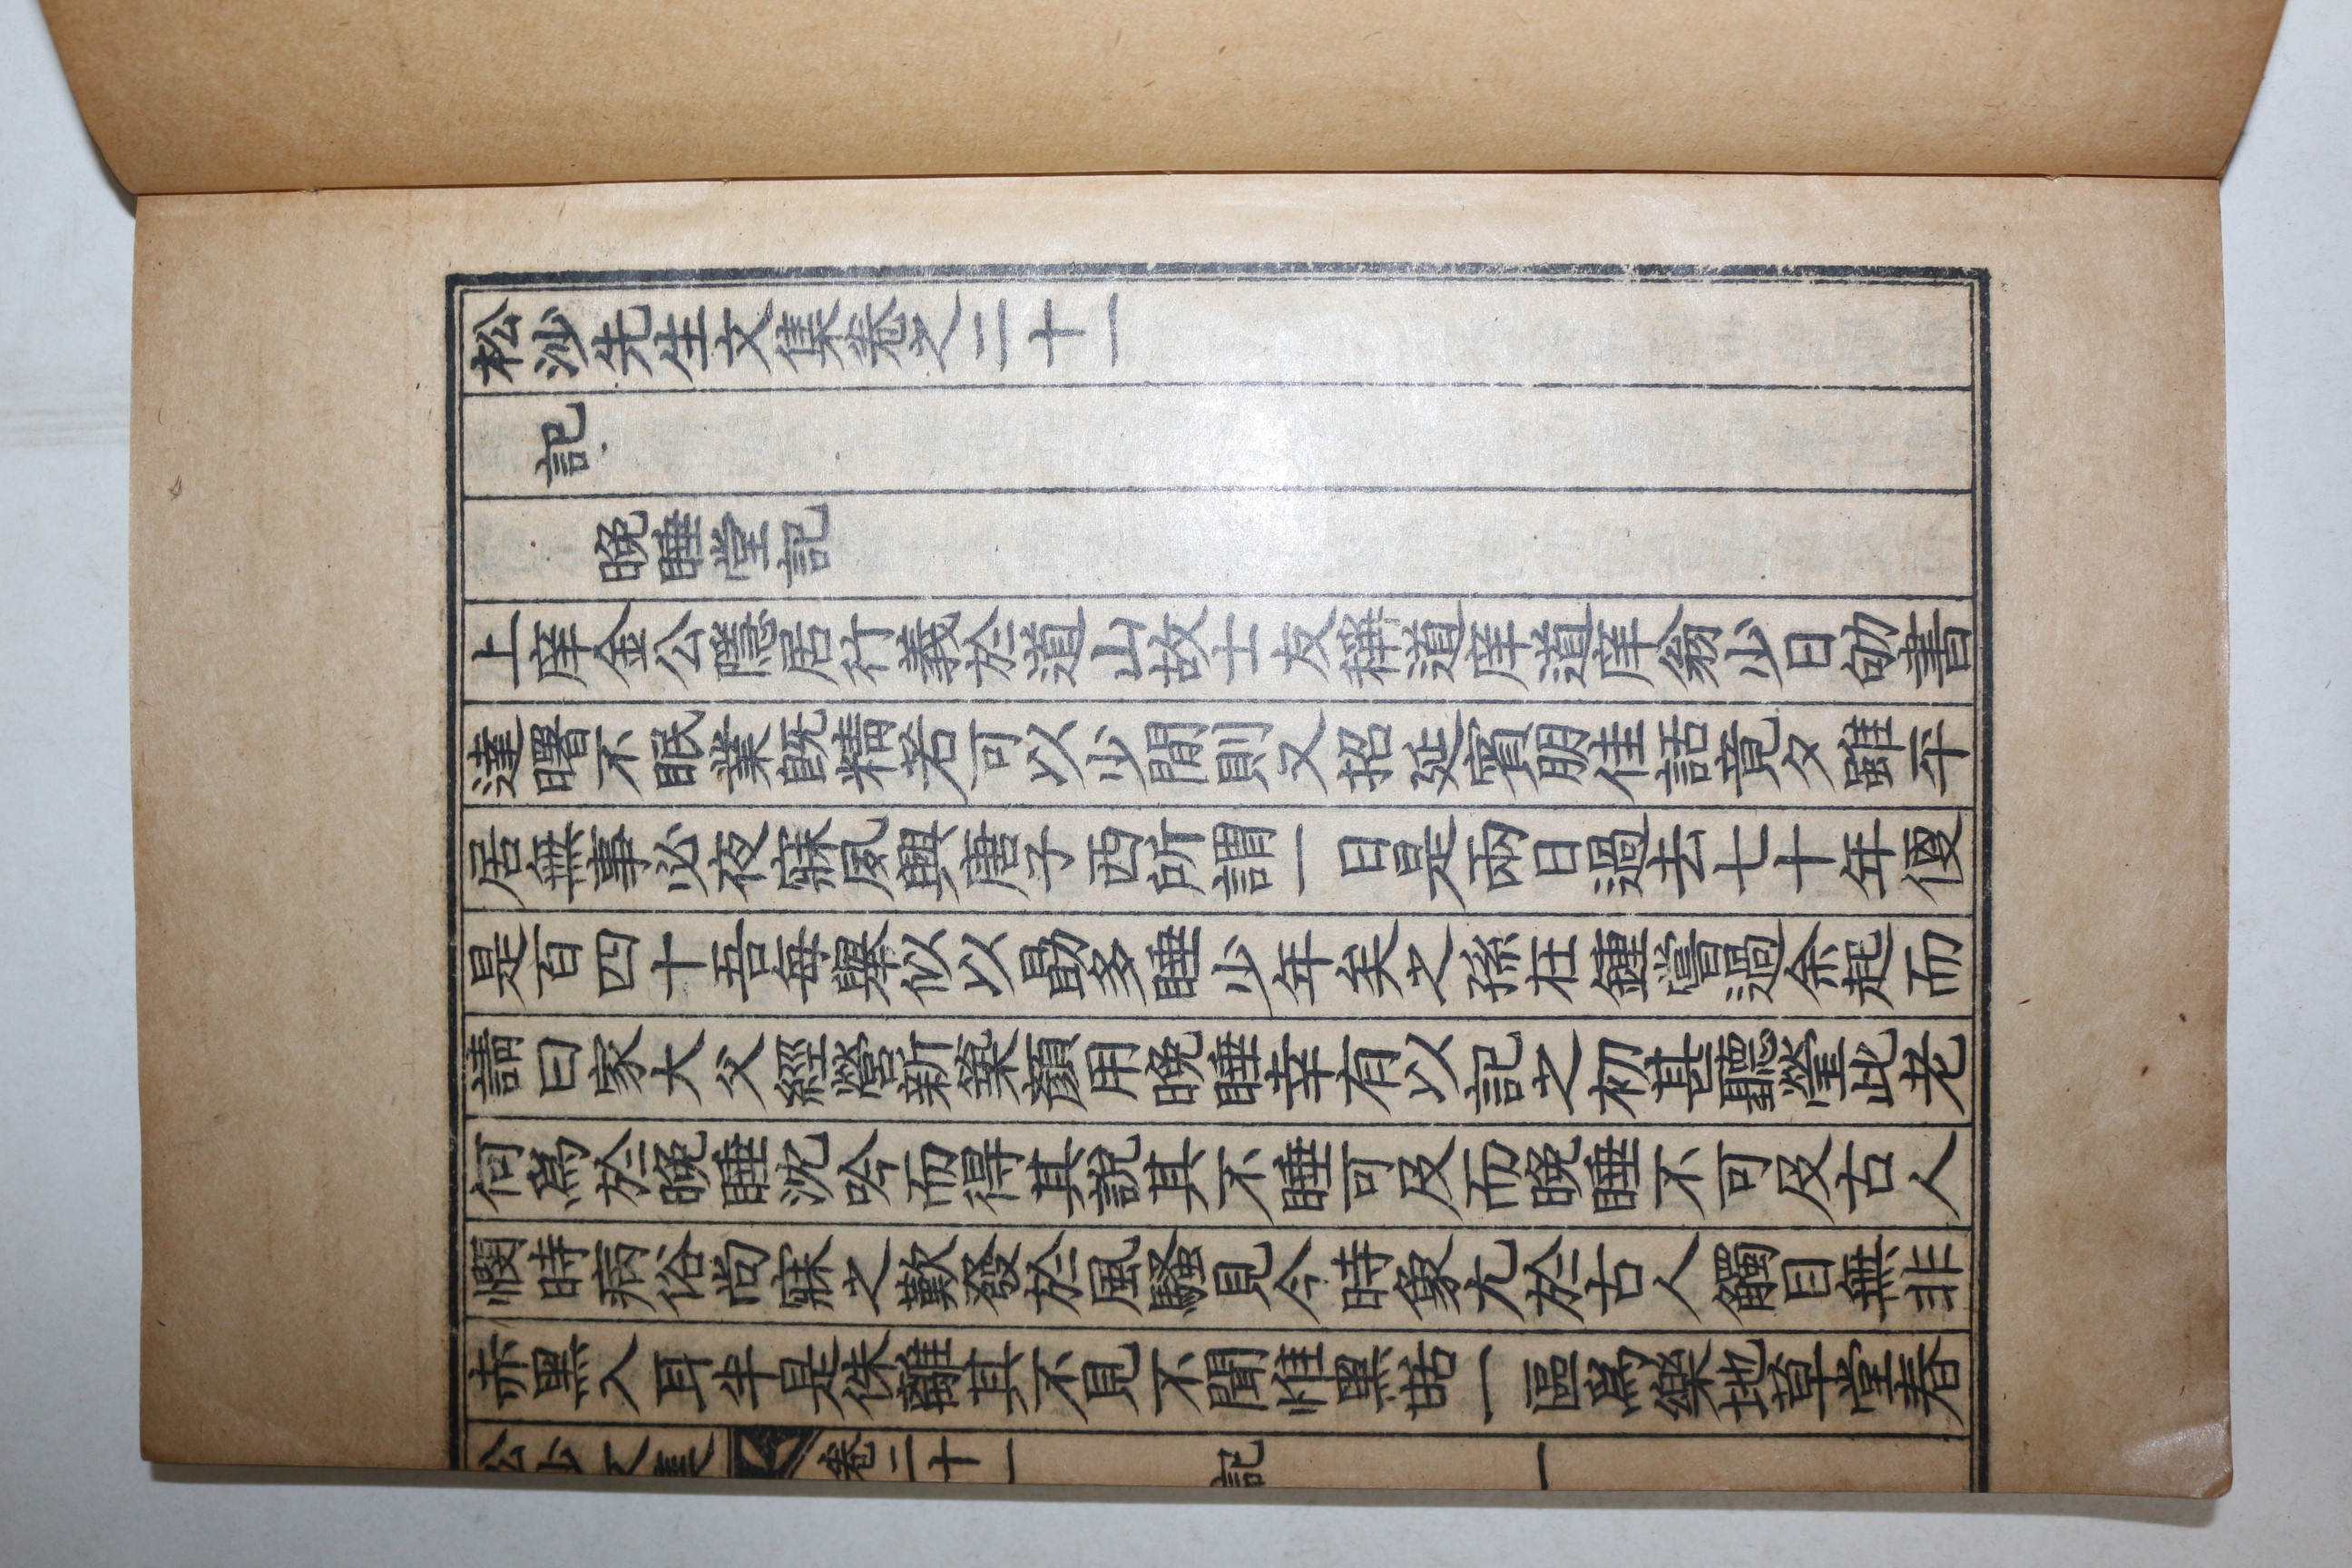 松沙先生文集卷之二十一
記
晩睡堂記
上庠金公隱居行義於道山故士友稱道庠道庠翁少日劬書
達曙不眠業旣精若可以少間則又招延賓朋佳話竟夕雖平
居無事必夜寐夙興唐子西所謂一日是兩日過去七十年便
是百四十吾每擧似以勗多睡少年矣之孫在鍾嘗過余起而
請曰家大父經營新築顔用晩睡幸有以記之初甚聽瑩此老
何爲於晩睡沈吟而得其說其不睡可及而晩睡不可及古人
憫時病俗尙寐之歎發於風騷見今時象尤於古人觸目無非
赤黑入耳半是侏離其不見不聞惟黑甜一區爲樂地草堂春
松沙文集 卷二十一 記 一